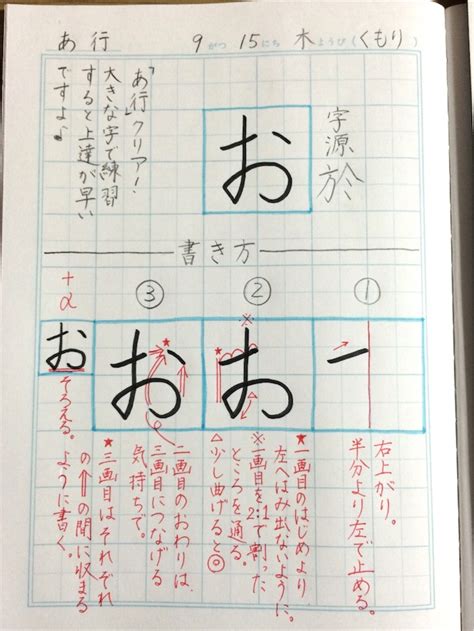 あ行 9がつ15にち 木ようび(くもり)
字源 於
お
「あ行」クリア!
大きな字で練習
すると上達が早い
ですよ♪
書き方
①
右上がり。
半分より左で止める。
②
※
★
お
★一画目のはじめより
左へはみ出ないように。
※一画目を2:1で割った
ところを通る。
△少し曲げると◎
③
★
お
二画目のおわりは、
三画目につなげる
気持ちで。
★三画目はそれぞれ
の⇧の間に収まる
ように書く。
+α
お
そろえる。